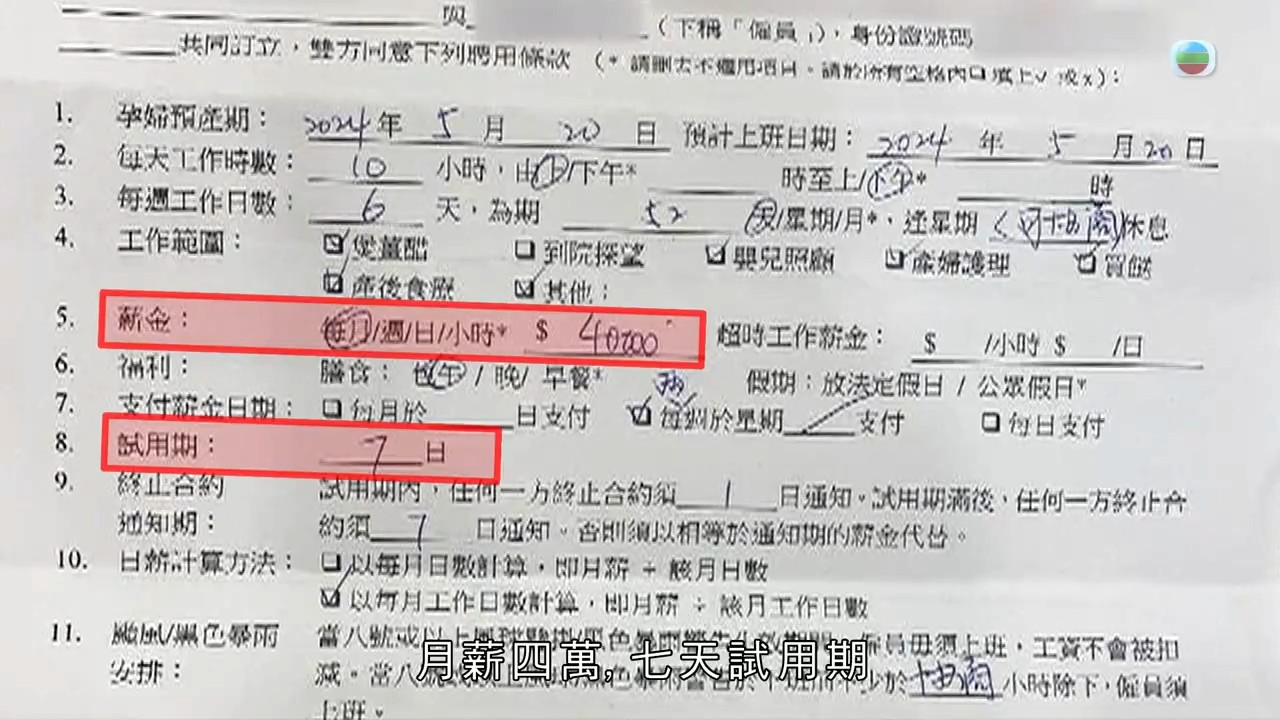 與 (下稱「僱員」), 身份證號碼
共同訂立，雙方同意下列聘用條款 (* 請刪去不適用項目。請於所有空格內☐填上✓ 或x):
1. 孕婦預產期： 2024 年 5 月 20 日 預計上班日期： 2024 年 5 月 20 日
2. 每天工作時數： 10 小時，由上/下午* 時至上/下午* 時
3. 每週工作日數： 6 天，為期 52 天/星期/月*，逢星期 休息
4. 工作範圍： ☑煲薑醋 ☐到院探望 ☑嬰兒照顧 ☑產婦護理 ☑買餸
☑產後食療 ☑其他：
5. 薪金： 每月/週/日/小時* $ 40000 超時工作薪金： $ /小時 $ /日
6. 福利： 膳食： 包午 / 晚/ 早餐* 假期：放法定假日 / 公眾假日*
7. 支付薪金日期：☐每月於 日支付 ☑每 於星期 支付 ☐每日支付
8. 試用期： 7 日
9. 終止合約 試用期內，任何一方終止合約須 1 日通知。試用期滿後，任何一方終止合
通知期： 約須 7 日通知。否則須以相等於通知期的薪金代替。
10. 日薪計算方法：☐以每月日數計算，即月薪 ÷ 該月日數
☑以每月工作日數計算，即月薪 ÷ 該月工作日數
11. 颱風/黑色暴雨 當八號或以上 僱員毋須上班，工資不會被扣
安排： 減。當八號 少於 小時除下，僱員須
上班。
月薪四萬, 七天試用期